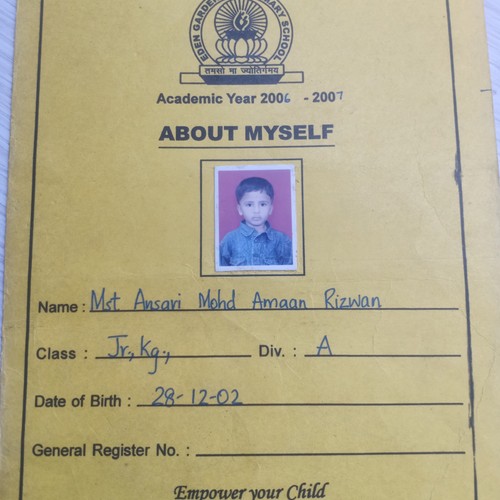 EDEN GARDEN SCHOOL
तमसो मा ज्योतिर्गमय
Academic Year 2006 - 2007
ABOUT MYSELF
Name : Mst Ansari Mohd Amaan Rizwan
Class : Jr., Kg., Div. : A
Date of Birth : 28-12-02
General Register No. :
Empower your Child